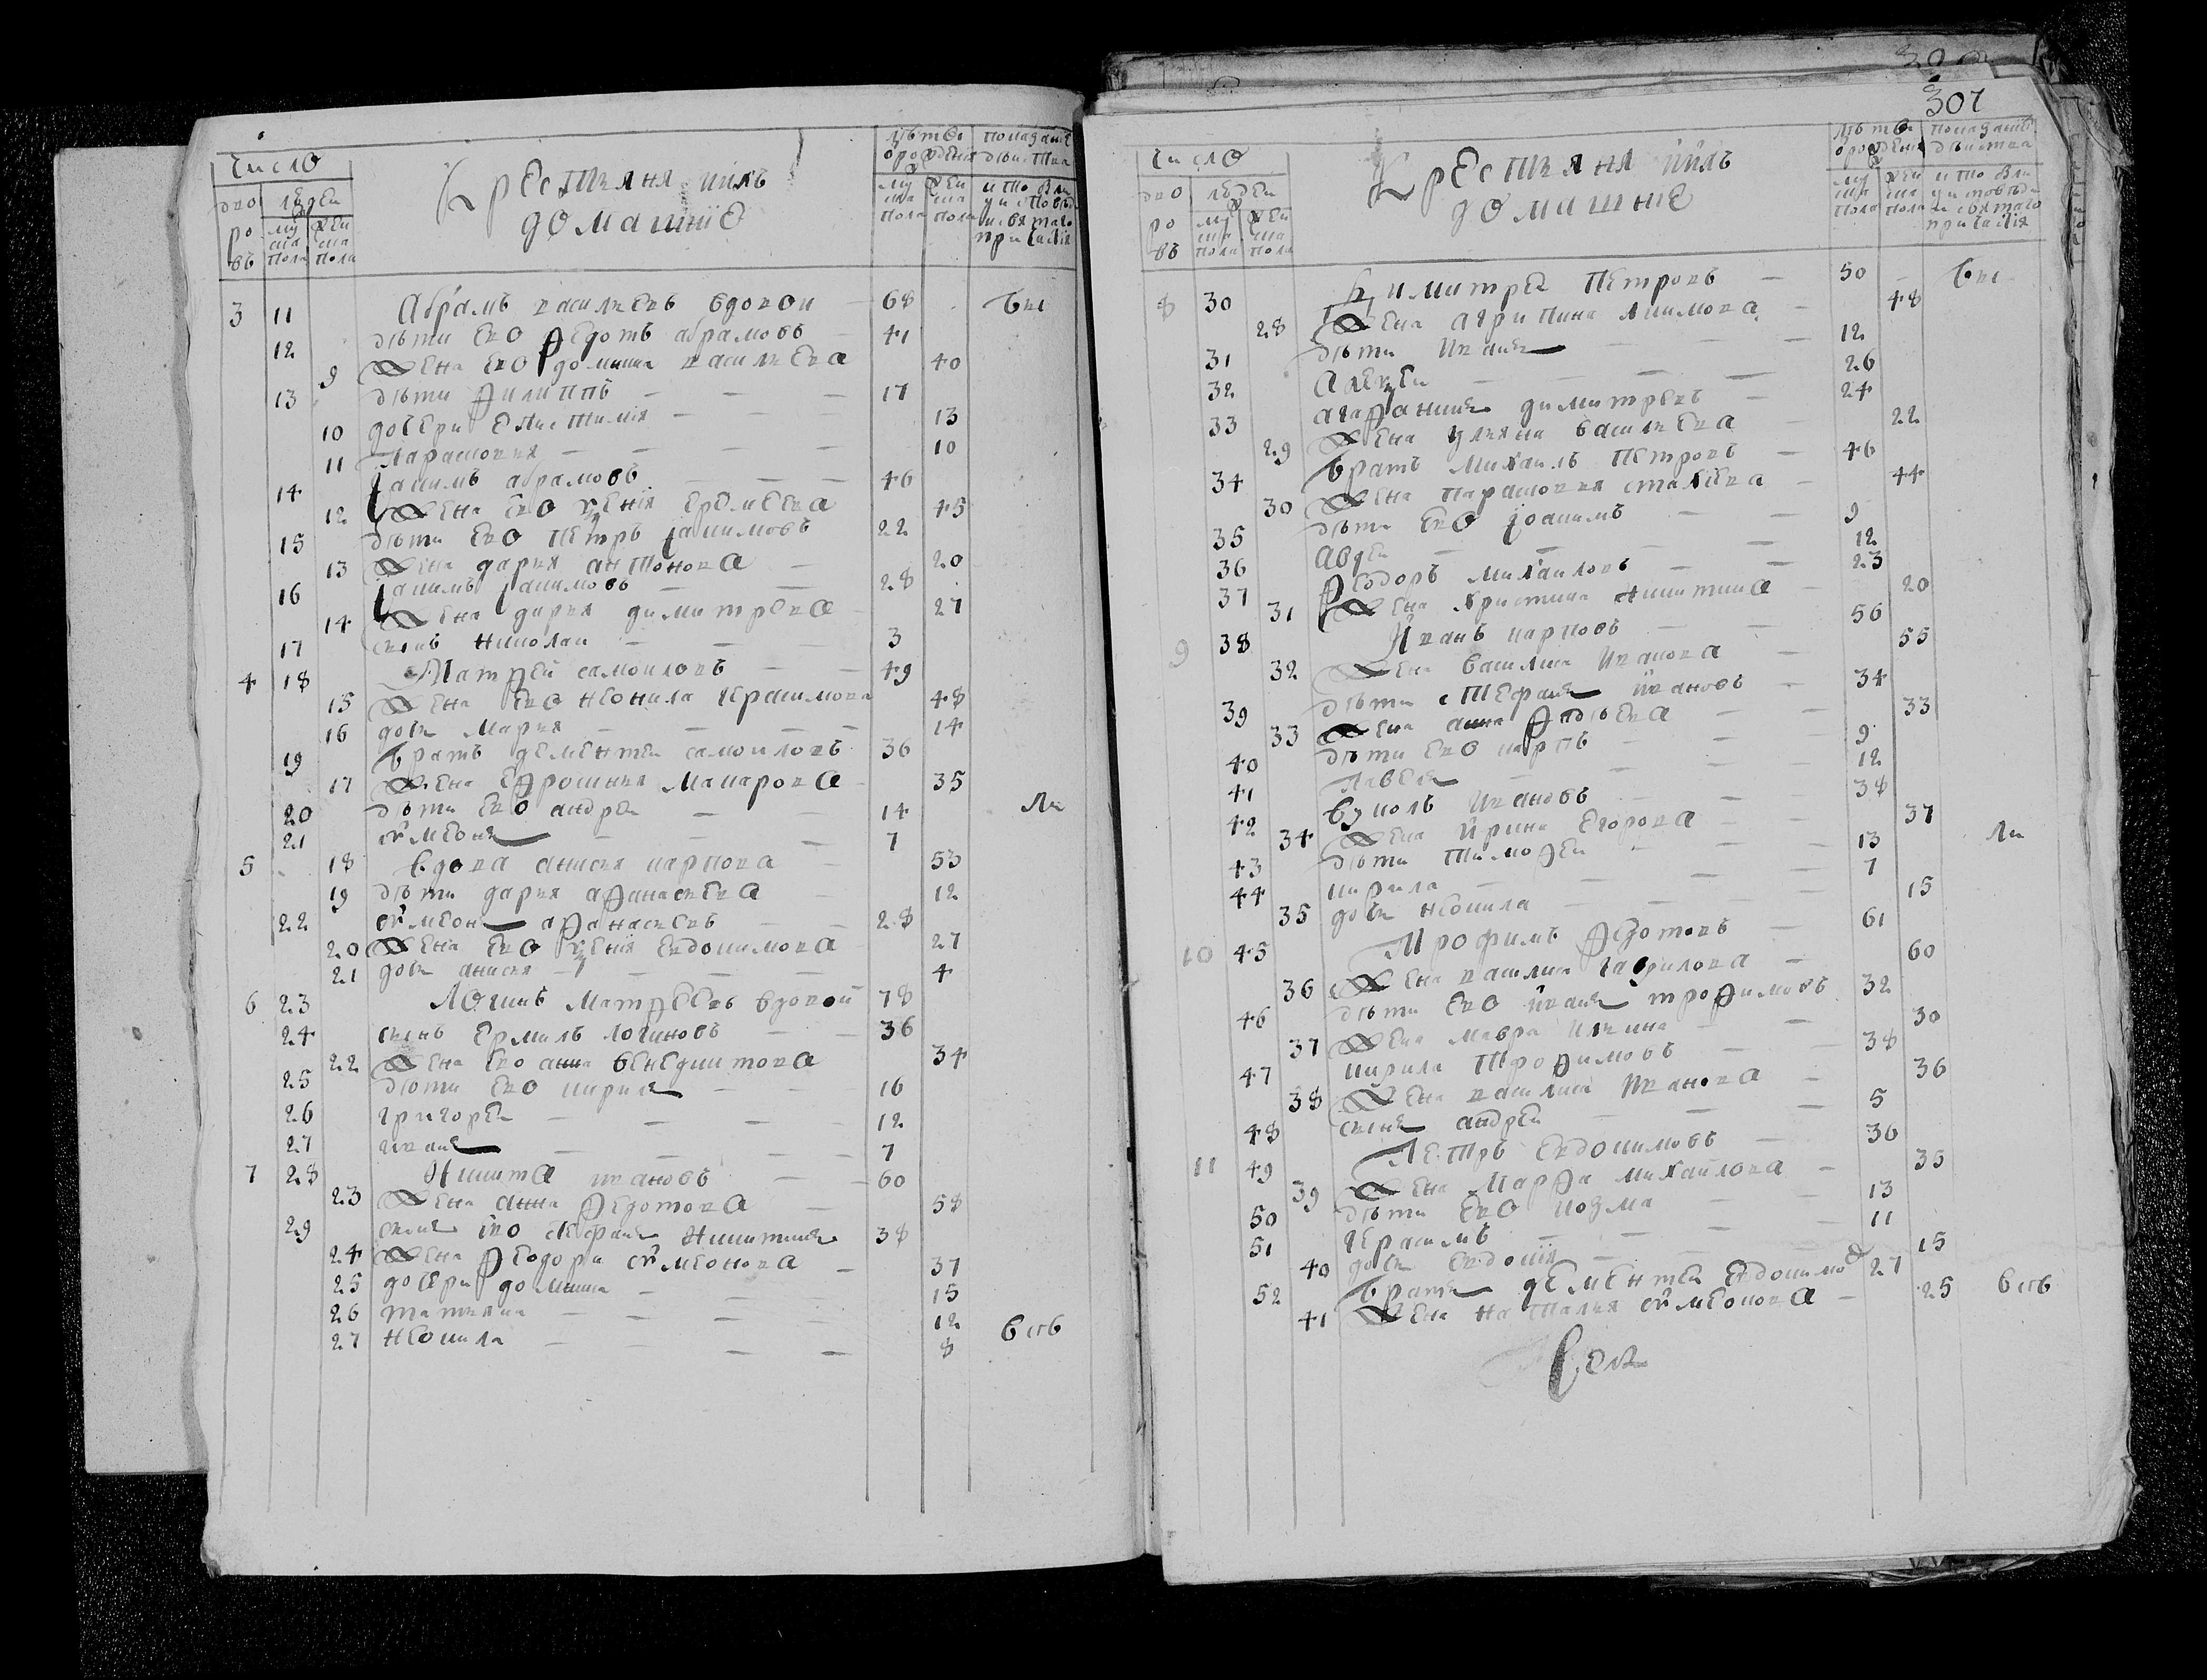 Число
дво ро въ
людей
муска пола
женска пола
Крестьяня ихъ
домашніе
лѣта от рожденія
муска пола
женска пола
3 11 Абрамъ василиевъ вдовой 68 бы
12 дѣти ево Федотъ абрамовъ 41
9 Жена ево домника василиева 40
13 дѣти Филиппъ 17
10 дочери епистимия 13
11 Парасковия 10
14 Іакимъ абрамовъ 46
12 Жена ево ксения еремеева 45
15 дѣти ево Петръ Іакимовъ 22
13 Жена дария антонова 20
16 Іакимъ Іакимовъ 28
14 Жена дария димитрева 27
17 сынъ николаи 3
4 18 Матфей самоиловъ 49
15 Жена ево неонила герасимова 48
16 дочь Мария 14
19 братъ дементеи самоиловъ 36
17 Жена Ефросиния Макарова 35
20 дѣти ево андреи 14 ли
21 симеонъ 7
5 18 вдова анисия карпова 53
19 дѣти дария афанасиева 12
22 симеонъ афанасиевъ 28
20 Жена ево ксения евдокимова 27
21 дочь анисия 4
6 23 Логинъ Матфеевъ вдовой 78
24 сынъ Ермилъ логиновъ 36
22 Жена ево анна венедиктова 34
25 дѣти ево кирилъ 16
26 григореи 12
27 иванъ 7
7 28 Никита ивановъ 60
23 Жена анна Федотова 58
29 сынъ ево стефанъ Никитинъ 38
24 Жена Феодора симеонова 37
25 дочери домника 15
26 татияна 12
27 неонила 8 всѣ
307
Число
дво ро въ
людеи
муска пола
женска пола
Крестьяня ихъ
домашніе
лѣта от рожденія
муска пола
женска пола
8 30 Димитреи Петровъ 50 бы
28 Жена агрипина Якимова 48
31 дѣти Иванъ 12
32 Алексеи 26
33 агафаникъ димитревъ 24
29 Жена улияна василиева 22
34 братъ Михаилъ Петровъ 46
30 Жена парасковия стахиева 44
35 дѣти ево Іоакимъ 9
36 Авдеи 12
37 Феодоръ михаиловъ 23
31 Жена Христина Никитина 20
9 38 Иванъ карповъ 56
32 Жена василиса Иванова 55
39 дѣти стефанъ ивановъ 34
33 Жена анна Фадѣева 33
40 дѣти ево карпъ 9
41 Павелъ 12
42 вуколъ ивановъ 38
34 Жена ирина Егорова 37
43 дѣти тимофеи 13 ли
44 кирила 7
35 дочь неонила 15
10 45 Трофимъ Федотовъ 61
36 Жена василиса гаврилова 60
46 дѣти ево иванъ трофимовъ 32
37 Жена мавра илиина 30
47 кирила Трофимовъ 38
38 Жена василиса иванова 36
48 сынъ андреи 5
11 49 Петръ Евдокимовъ 36
39 Жена Марфа михаилова 35
50 дѣти ево козма 13
51 герасимъ 11
40 дочь евдокия 15
52 братъ дементеи Евдокимов 27
41 Жена наталия симеонова 25 всѣ